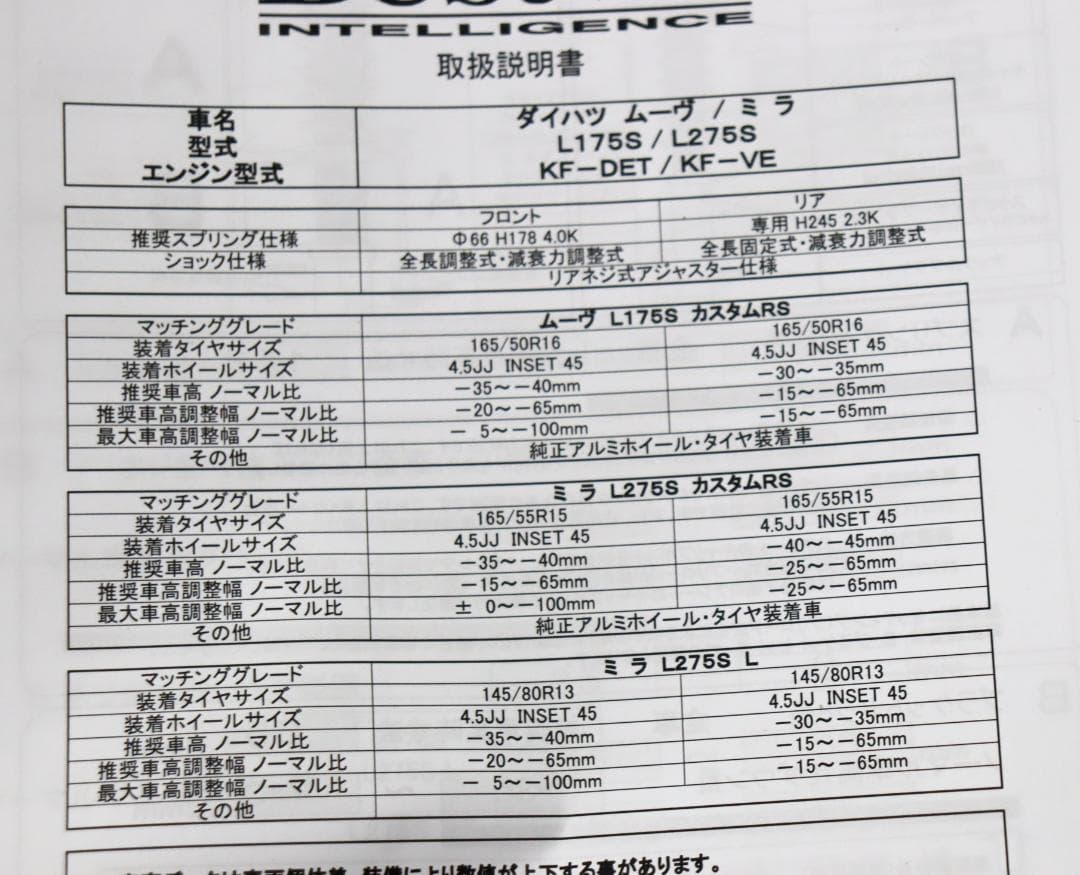 INTELLIGENCE
取扱説明書
車名 ダイハツ ムーヴ / ミラ
型式 L175S / L275S
エンジン型式 KF-DET / KF-VE
フロント リア
推奨スプリング仕様 Φ66 H178 4.0K 専用 H245 2.3K
ショック仕様 全長調整式・減衰力調整式 全長固定式・減衰力調整式
リアネジ式アジャスター仕様
マッチンググレード ムーヴ L175S カスタムRS
装着タイヤサイズ 165/50R16 165/50R16
装着ホイールサイズ 4.5JJ INSET 45 4.5JJ INSET 45
推奨車高 ノーマル比 -35~-40mm -30~-35mm
推奨車高調整幅 ノーマル比 -20~-65mm -15~-65mm
最大車高調整幅 ノーマル比 - 5~-100mm -15~-65mm
その他 純正アルミホイール・タイヤ装着車
マッチンググレード ミラ L275S カスタムRS
装着タイヤサイズ 165/55R15 165/55R15
装着ホイールサイズ 4.5JJ INSET 45 4.5JJ INSET 45
推奨車高 ノーマル比 -35~-40mm -40~-45mm
推奨車高調整幅 ノーマル比 -15~-65mm -25~-65mm
最大車高調整幅 ノーマル比 ± 0~-100mm -25~-65mm
その他 純正アルミホイール・タイヤ装着車
マッチンググレード ミラ L275S L
装着タイヤサイズ 145/80R13 145/80R13
装着ホイールサイズ 4.5JJ INSET 45 4.5JJ INSET 45
推奨車高 ノーマル比 -35~-40mm -30~-35mm
推奨車高調整幅 ノーマル比 -20~-65mm -15~-65mm
最大車高調整幅 ノーマル比 - 5~-100mm -15~-65mm
その他
装備により数値が上下する事があります。